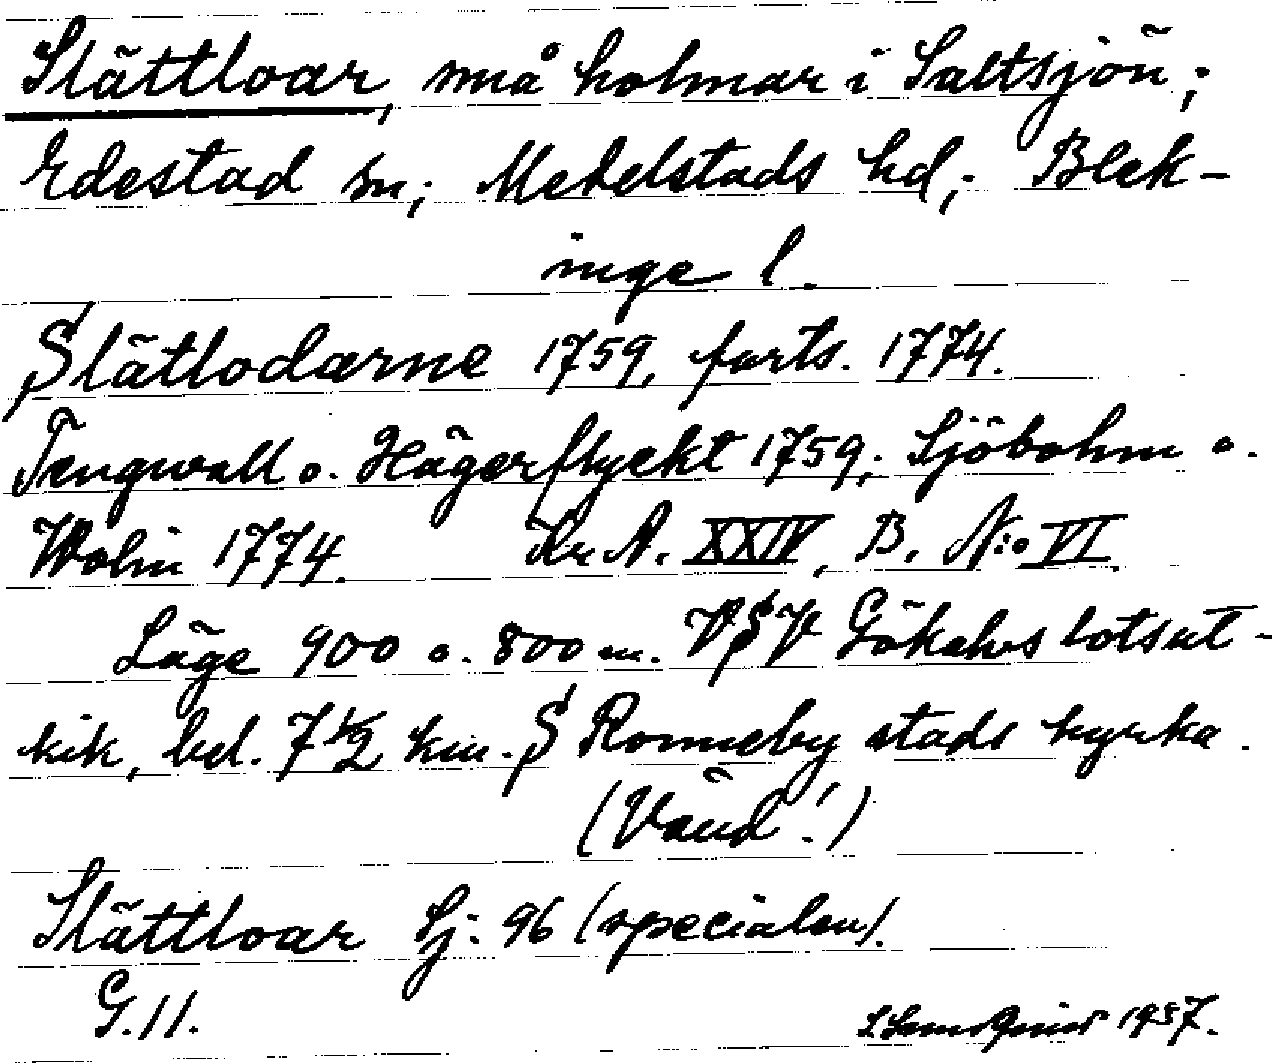 Slättloar, små holmar i Saltsjön;
Edestad sn; Medelstads hd; Blek-
inge l.
Slätlodarne 1759, forts. 1774.
Tengwall o. Hägerflyckt 1759; Sjöbohm o.
Wolin 1774. Kr A. XXIV, B. N:o VI.
Läge 900 o. 800 m. VSV Gökalvs lotsut-
kik, bel. 7 1/2 km. S Ronneby stads kyrka.
(Vänd!)
Slättloar Sj. 96 (specialen).
G. 11.
1937.